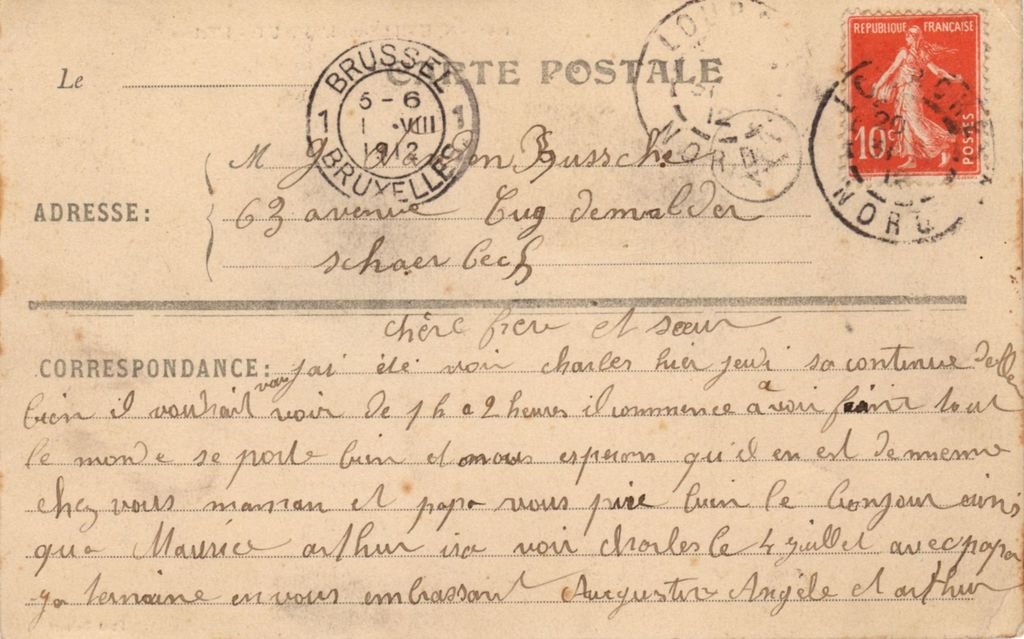 CARTE POSTALE
Le
BRUSSEL
5-6
1 VIII
1912
BRUXELLES
1 1
NORD
REPUBLIQUE FRANÇAISE
10c POSTES
NORD
M J Bussche
ADRESSE:
63 avenue Eug demolder
schaerbeck
chère frere et sœur
CORRESPONDANCE: j'ai été voir charles hier jeudi sa continue
bien il voudrait voir de 1 h a 2 heures il commence a avoir faim tout
le monde se porte bien et nous esperon qu'il en est de meme
chez vous maman et papa vous bien le bonjour ainsi
que Maurice arthur ira voir charles le 4 juillet avec papa
termine en vous embrassant Augustin Angèle et arthur